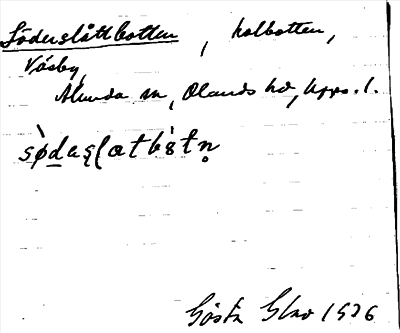 Söderslåttbotten, holbotten,
Väsby,
Alunda sn, Olands hd, Upps. l.
sø̀daʂɭatbòtn̥
Gösta Glav 1926